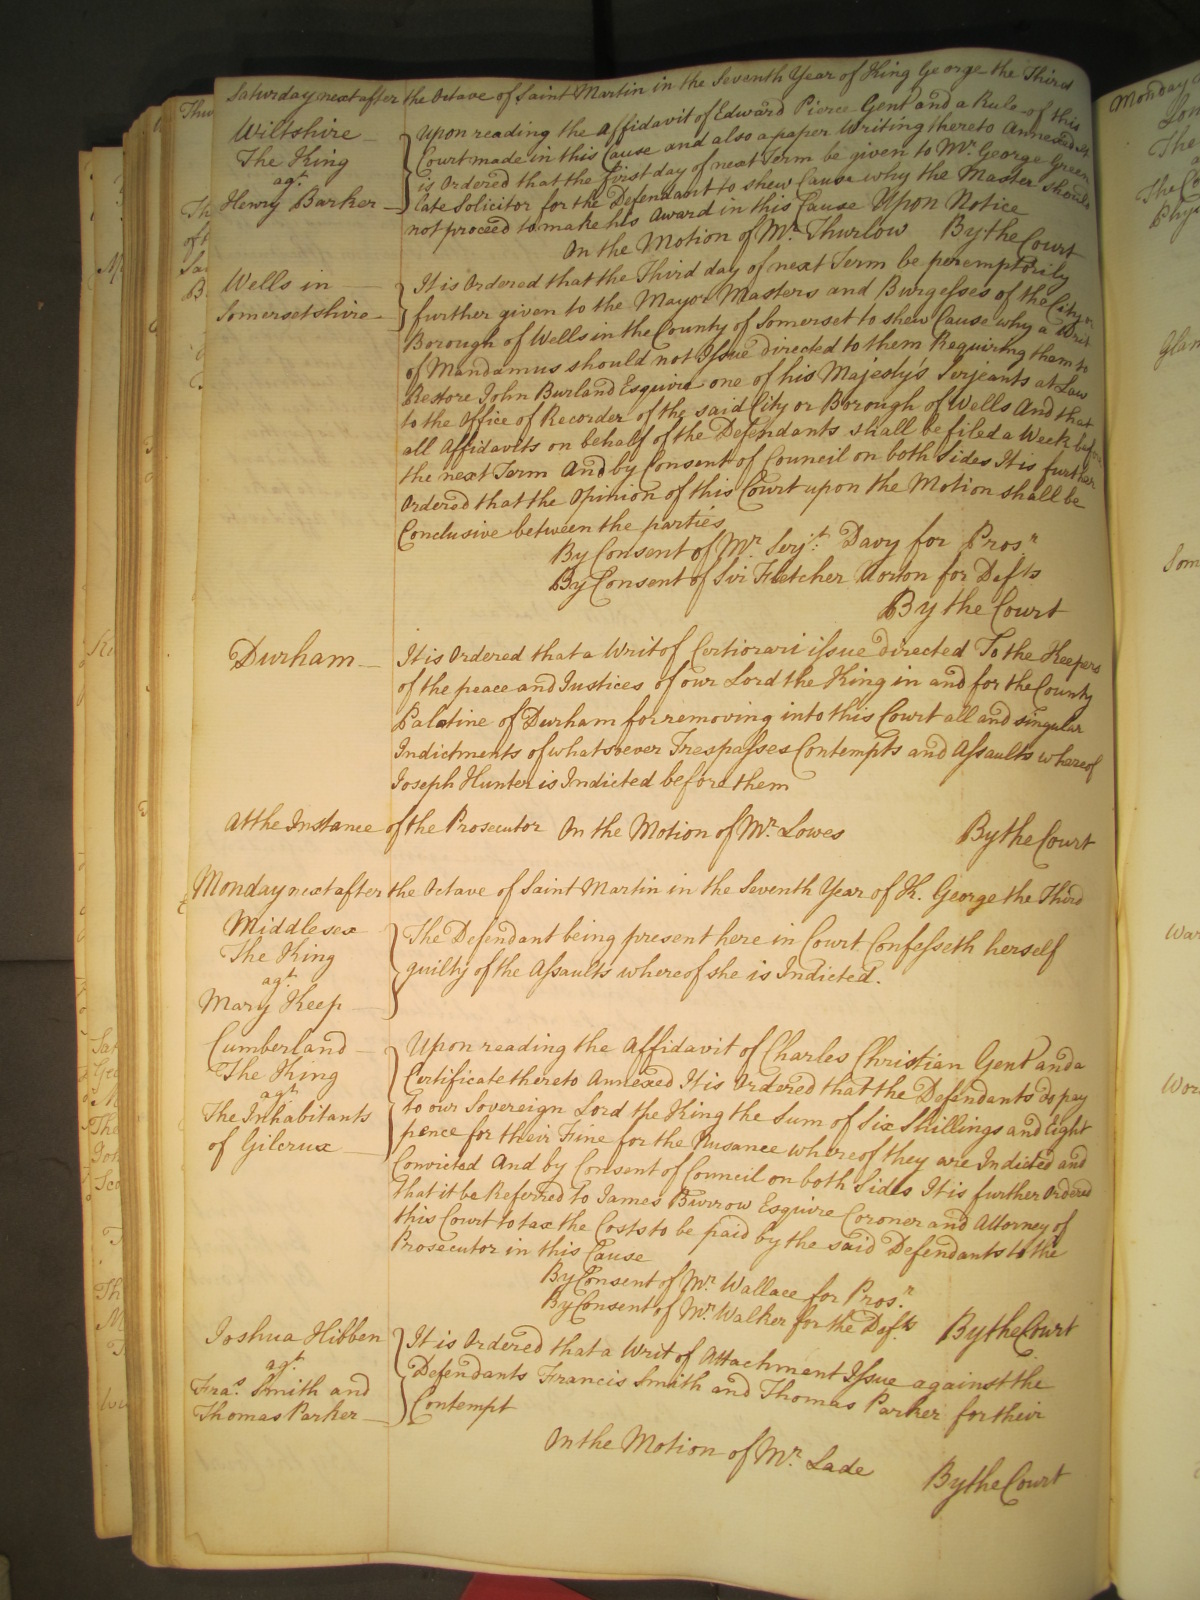 Saturday next after the Octave of Saint Martin in the Seventh Year of King George the Third
Wiltshire
The King
agt.
Henry Barker
Upon reading the Affidavit of Edward Pierce Gent and a Rule of this
Court made in this Cause and also a paper Writing thereto Annexed It
is Ordered that the first day of next Term be given to Mr. George Green
late Solicitor for the Defendant to shew Cause why the Master should
not proceed to make his Award in this Cause Upon Notice
On the Motion of Mr. Thurlow By the Court
Wells in
Somersetshire
It is Ordered that the Third day of next Term be peremptorily
further given to the Mayor Masters and Burgesses of the City or
Borough of Wells in the County of Somerset to shew Cause why a Writ
of Mandamus should not Issue directed to them Requiring them to
Restore John Burland Esquire one of his Majesty's Serjeants at Law
to the Office of Recorder of the said City or Borough of Wells And that
all Affidavits on behalf of the Defendants shall be filed a Week before
the next Term And by Consent of Council on both Sides It is further
Ordered that the Opinion of this Court upon the Motion shall be
Conclusive between the parties
By Consent of Mr. Serjt. Davy for Prosr.
By Consent of Sir Fletcher Norton for Defts
By the Court
Durham
It is Ordered that a Writ of Certiorari issue directed To the Keepers
of the peace and Justices of our Lord the King in and for the County
Palatine of Durham for removing into this Court all and singular
Indictments of whatsoever Trespasses Contempts and Assaults whereof
Joseph Hunter is Indicted before them
At the Instance of the Prosecutor On the Motion of Mr. Lowes By the Court
Monday next after the Octave of Saint Martin in the Seventh Year of K. George the Third
Middlesex
The King
agt.
Mary Keep
The Defendant being present here in Court Confesseth herself
guilty of the Assaults whereof she is Indicted.
Cumberland
The King
agt.
The Inhabitants
of Gilcrux
Upon reading the Affidavit of Charles Christian Gent and a
Certificate thereto Annexed It is Ordered that the Defendants do pay
to our Sovereign Lord the King the Sum of Six Shillings and Eight
pence for their Fine for the Nusance whereof they are Indicted and
Convicted And by Consent of Council on both Sides It is further Ordered
that it be Referred to James Burrow Esquire Coroner and Attorney of
this Court to tax the Costs to be paid by the said Defendants to the
Prosecutor in this Cause
By Consent of Mr. Wallace for Prosr.
By Consent of Mr. Walker for the Defts By the Court
Joshua Hibben
agt.
Fras. Smith and
Thomas Parker
It is Ordered that a Writ of Attachment Issue against the
Defendants Francis Smith and Thomas Parker for their
Contempt
On the Motion of Mr. Lade By the Court
Monday